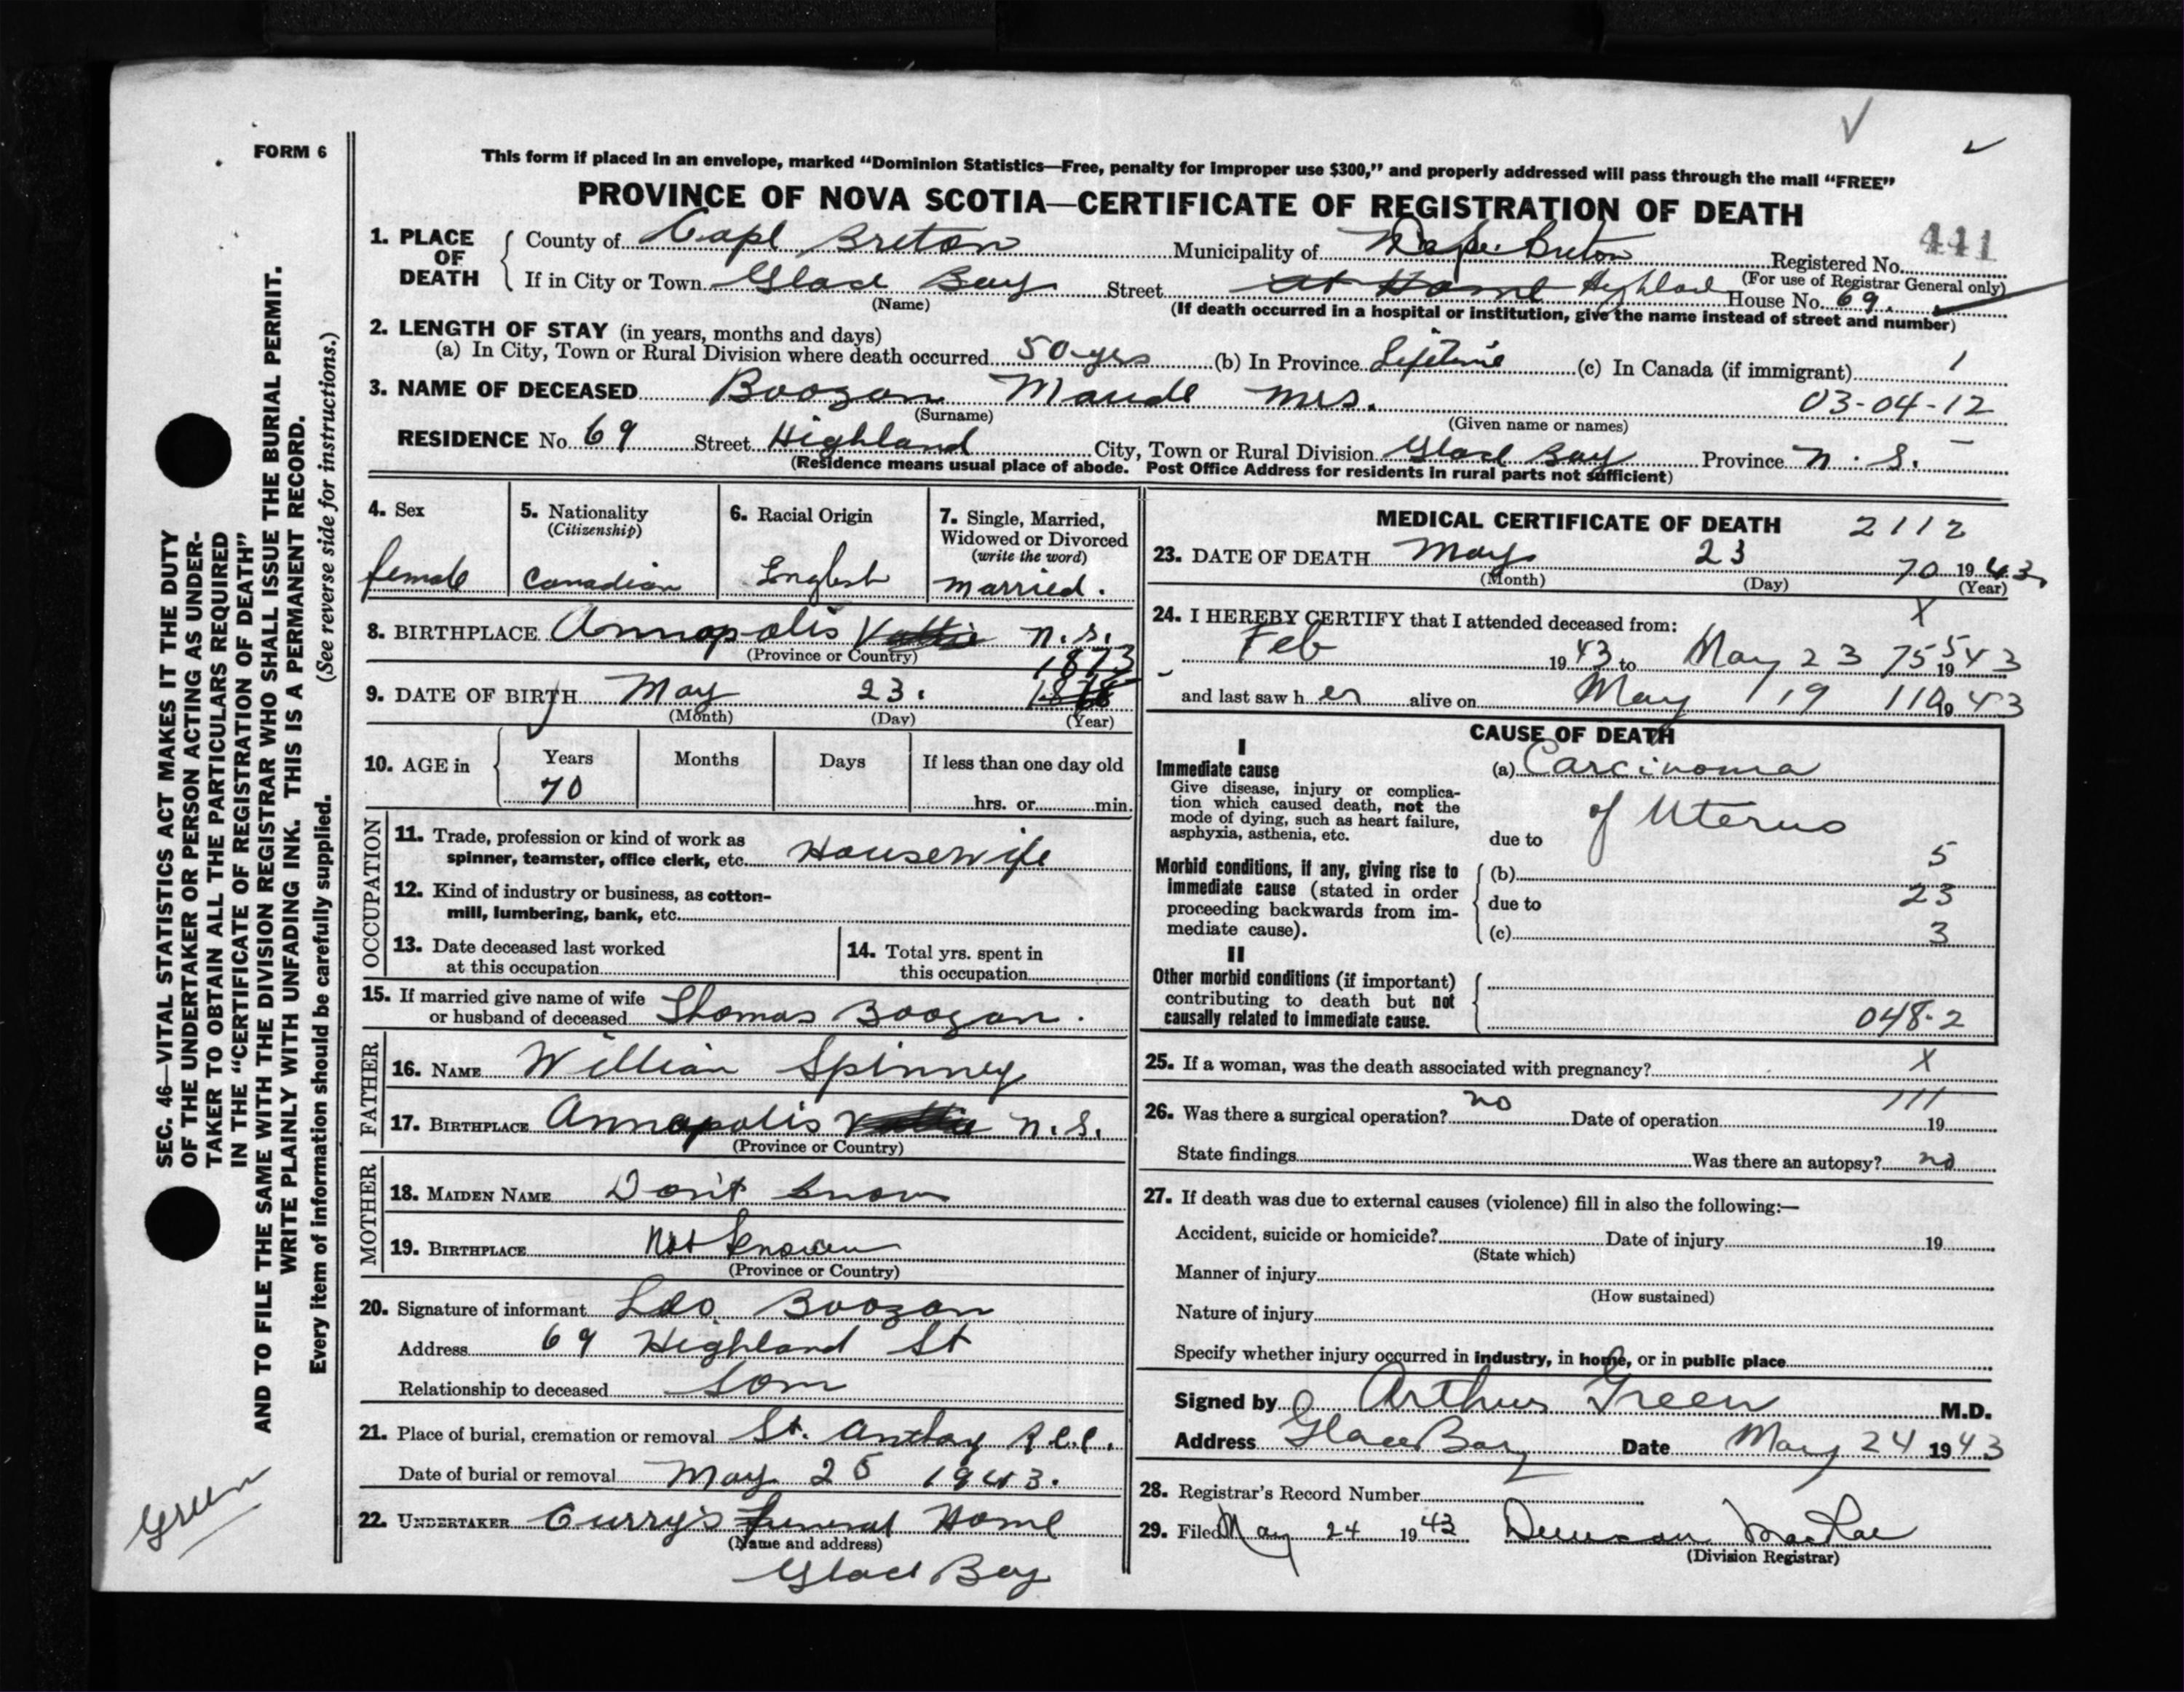 FORM 6
This form if placed in an envelope, marked "Dominion Statistics—Free, penalty for improper use $300," and properly addressed will pass through the mail "FREE"
PROVINCE OF NOVA SCOTIA—CERTIFICATE OF REGISTRATION OF DEATH
441
1. PLACE OF DEATH County of Cape Breton Municipality of Cape Breton Registered No.
(For use of Registrar General only)
If in City or Town Glace Bay Street at Home Highland House No. 69.
(Name) (If death occurred in a hospital or institution, give the name instead of street and number)
2. LENGTH OF STAY (in years, months and days)
(a) In City, Town or Rural Division where death occurred 50 yrs (b) In Province Lifetime (c) In Canada (if immigrant) 1
3. NAME OF DECEASED Boozan Maude Mrs. 03-04-12
(Surname) (Given name or names)
RESIDENCE No. 69 Street Highland City, Town or Rural Division Glace Bay Province N.S.
(Residence means usual place of abode. Post Office Address for residents in rural parts not sufficient)
4. Sex
female
5. Nationality
(Citizenship)
Canadian
6. Racial Origin
English
7. Single, Married,
Widowed or Divorced
(write the word)
married.
8. BIRTHPLACE Annapolis N.S.
(Province or Country)
1873
9. DATE OF BIRTH May 23.
(Month) (Day) (Year)
10. AGE in Years Months Days If less than one day old
70 hrs. or min.
OCCUPATION
11. Trade, profession or kind of work as
spinner, teamster, office clerk, etc. Housewife
12. Kind of industry or business, as cotton-
mill, lumbering, bank, etc.
13. Date deceased last worked
at this occupation
14. Total yrs. spent in
this occupation
15. If married give name of wife
or husband of deceased Thomas Boozan.
FATHER
16. NAME William Spinney
17. BIRTHPLACE Annapolis N.S.
(Province or Country)
MOTHER
18. MAIDEN NAME Don't know
19. BIRTHPLACE Not known
(Province or Country)
20. Signature of informant Leo Boozan
Address 69 Highland St
Relationship to deceased Son
21. Place of burial, cremation or removal St. Anthony R.C.C.
Date of burial or removal May 25 1943.
22. UNDERTAKER Curry's Funeral Home
(Name and address)
Glace Bay
MEDICAL CERTIFICATE OF DEATH 2112
23. DATE OF DEATH May 23 70 1943.
(Month) (Day) (Year)
24. I HEREBY CERTIFY that I attended deceased from: X
Feb 1943 to May 23 75 5 1943
and last saw her alive on May 19 110 1943
CAUSE OF DEATH
I
Immediate cause
Give disease, injury or complica-
tion which caused death, not the
mode of dying, such as heart failure,
asphyxia, asthenia, etc.
(a) Carcinoma
of Uterus
due to
Morbid conditions, if any, giving rise to
immediate cause (stated in order
proceeding backwards from im-
mediate cause).
(b) 5
due to 23
(c) 3
II
Other morbid conditions (if important)
contributing to death but not
causally related to immediate cause.
048-2
25. If a woman, was the death associated with pregnancy? X
111
26. Was there a surgical operation? no Date of operation 19
State findings Was there an autopsy? no
27. If death was due to external causes (violence) fill in also the following:—
Accident, suicide or homicide? Date of injury 19
(State which)
Manner of injury
(How sustained)
Nature of injury
Specify whether injury occurred in industry, in home, or in public place
Signed by Arthur Green M.D.
Address Glace Bay Date May 24 1943
28. Registrar's Record Number
29. Filed May 24 1943 Duncan MacRae
(Division Registrar)
SEC. 46—VITAL STATISTICS ACT MAKES IT THE DUTY
OF THE UNDERTAKER OR PERSON ACTING AS UNDER-
TAKER TO OBTAIN ALL THE PARTICULARS REQUIRED
IN THE "CERTIFICATE OF REGISTRATION OF DEATH"
AND TO FILE THE SAME WITH THE DIVISION REGISTRAR WHO SHALL ISSUE THE BURIAL PERMIT.
WRITE PLAINLY WITH UNFADING INK. THIS IS A PERMANENT RECORD.
Every item of information should be carefully supplied. (See reverse side for instructions.)
Green